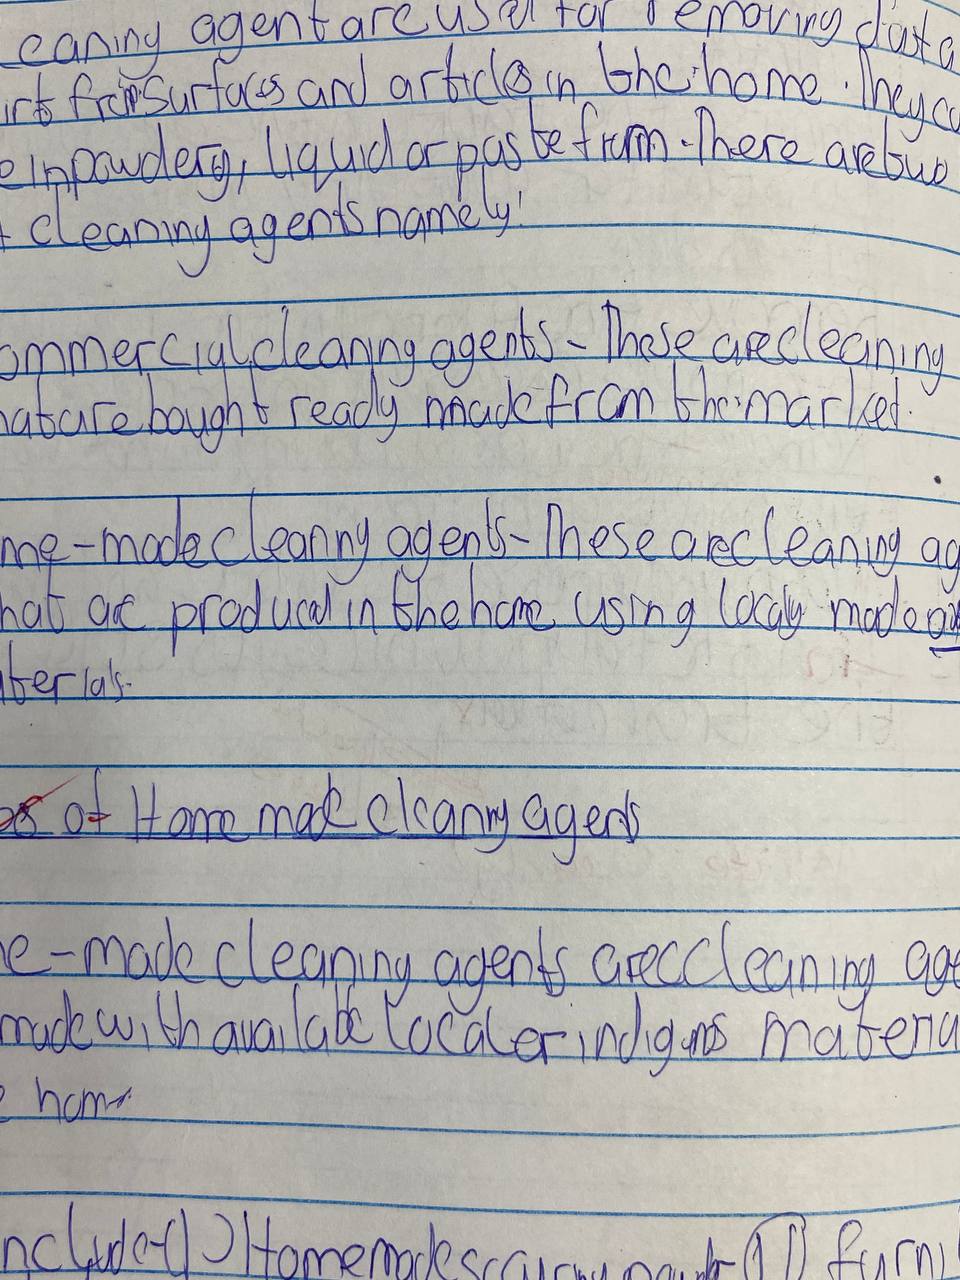 eaning agent are used for removing dast a
irt from Surfaces and article in the home. They ca
e in powdery, liquid or paste from. There are two
f cleaning agents namely!
ommercial cleaning agents - These are cleaning
hat are bought ready made from the market.
me-made cleanny agents - These are cleaning ag
hat are produced in the home using localy made
aterials.
of Home made cleanny agents
e-made cleaning agents are cleaning age
made with available local or indigns materia
e home
nclude (1) Homemade scouring (11) furni